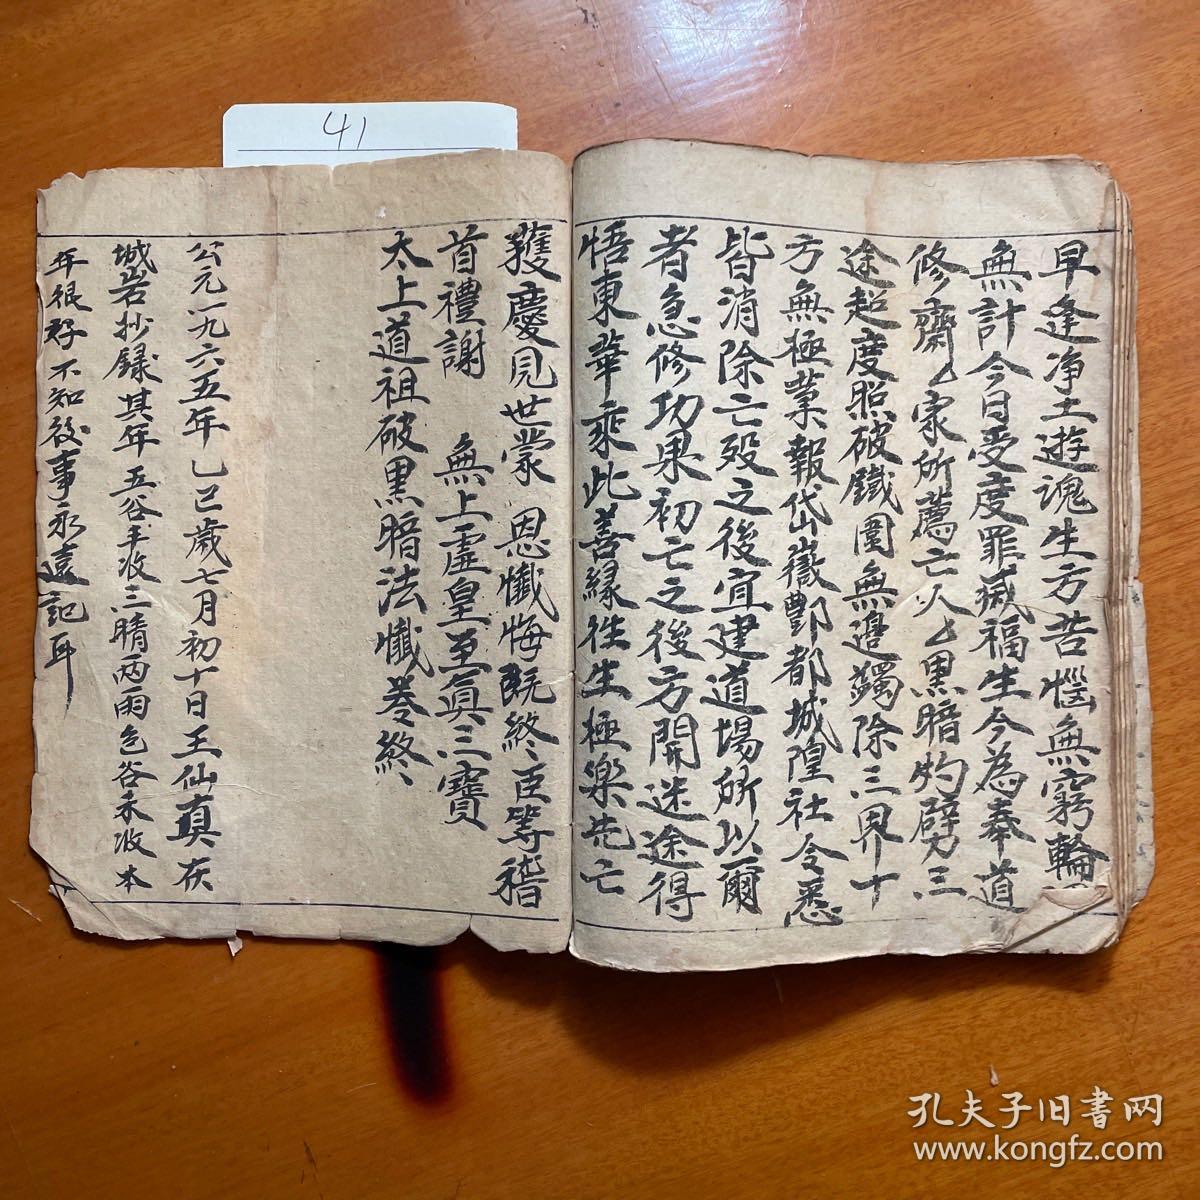 41
早逢净土遊魂生方苦惱無窮輪
無計今日受度罪滅福生今為奉道
修齋〻家所薦亡人〻黑暗灼劈三
途超度照破鐵圍無邊蠲除三界十
方無極業報岱嶽酆都城隍社令悉
皆消除亡歿之後宜建道場所以爾
者急修功果初亡之後方開迷途得
悟東華乘此善緣往生極樂先亡
獲慶見世蒙 恩懺悔既終臣等稽
首禮謝 無上虛皇至真三寶
太上道祖破黑暗法懺卷終
公元一九六五年乙巳歲七月初十日王仙真在
城岩抄錄其年五谷半收三晴两雨色谷禾收本
年很好不知後事永遠記耳
孔夫子旧书网
www.kongfz.com